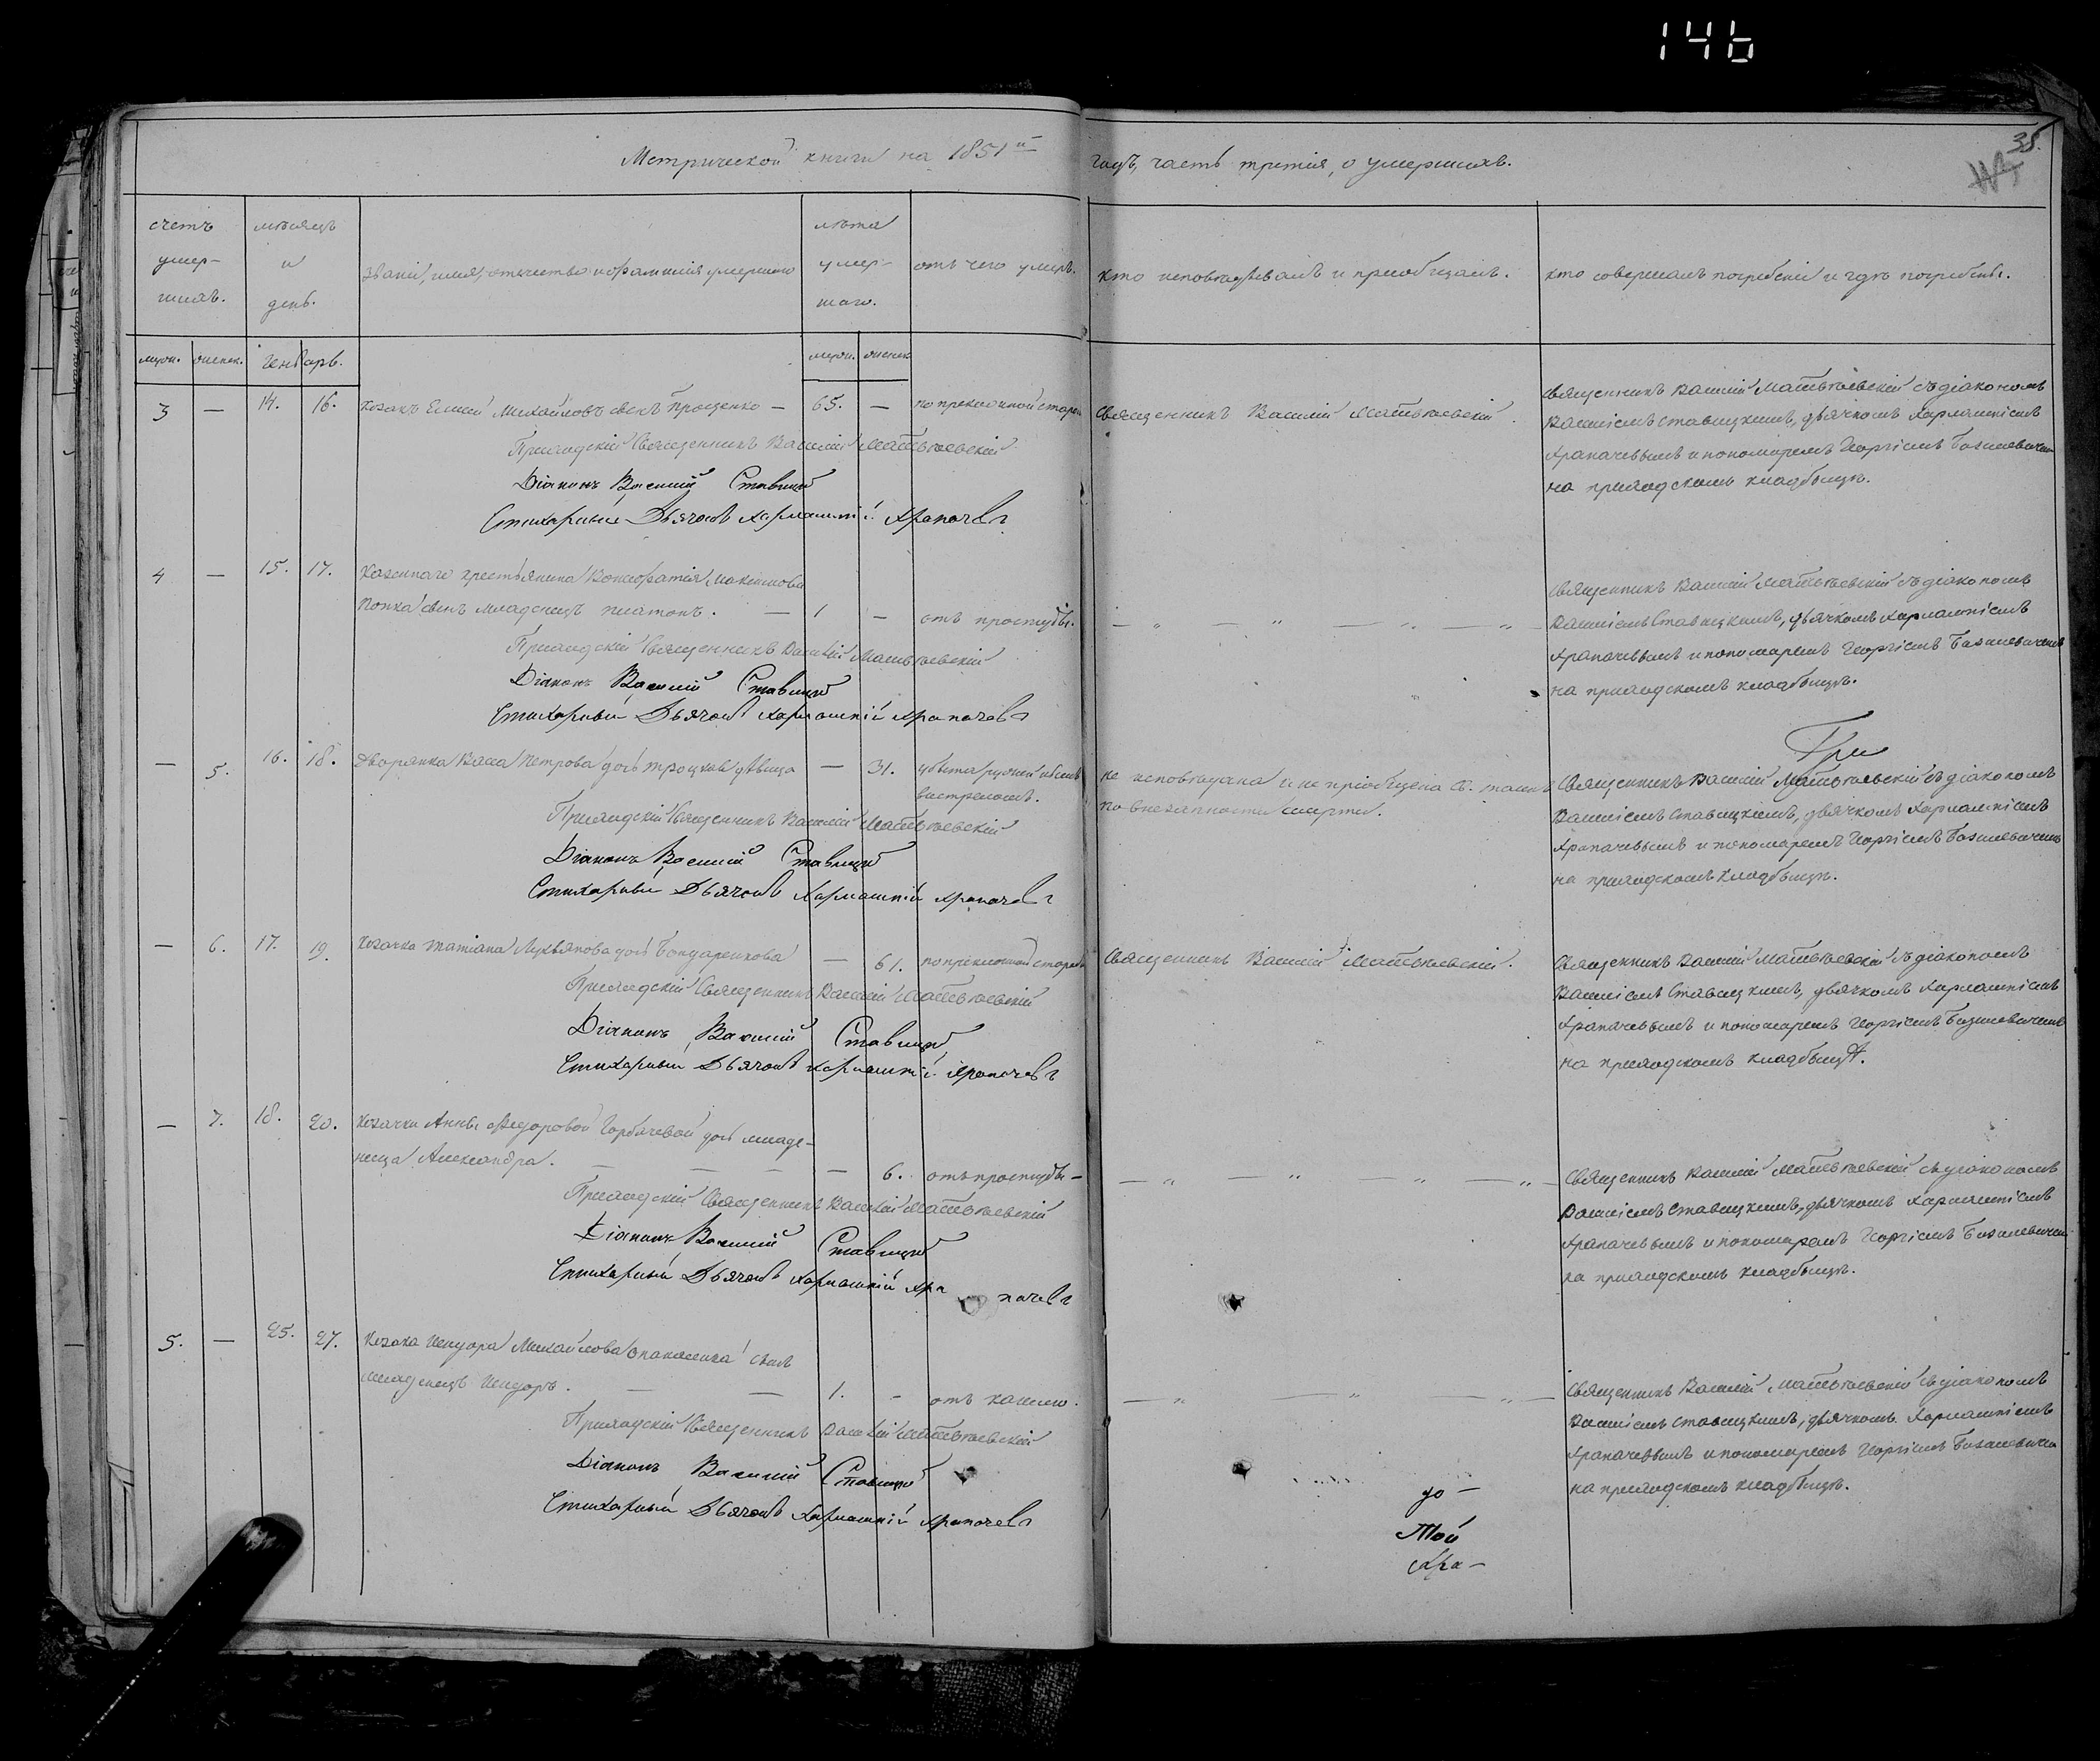 146
35.
Метрической книги на 1851й годъ, часть третія, о умершихъ.
счетъ умер-шихъ.
мѣсяцъ и день.
званіе, имя, отечество и фамилія умершаго
лѣта умер-шаго.
отъ чего умеръ.
кто исповѣдывалъ и пріобщалъ.
кто совершалъ погребеніе и гдѣ погребены.
муж. женск. Генварь. муж. женск.
3 — 14. 16. Козакъ Михайловъ сынъ Проценко — 65. — по преклонной старости Священникъ Василій Матвѣевскій.
Священникъ Василій Матвѣевскій съ діакономъ
Василіемъ Ставицкимъ, дьячкомъ Харлампіемъ
Храпачевымъ и пономаремъ Георгіемъ Базилевичемъ
на приходскомъ кладбищѣ.
Приходскій Священникъ Василій Матвѣевскій
Діаконъ Василій Ставицкій
Стихарный Дьячокъ Харлампій Храпачевъ
4 — 15. 17. Казеннаго крестьянина
сынъ младенецъ Платонъ. — 1 — отъ простуды. — „ — „ — „ — „ —
Священникъ Василій Матвѣевскій съ діакономъ
Василіемъ Ставицкимъ, дьячкомъ Харлампіемъ
Храпачевымъ и пономаремъ Георгіемъ Базилевичемъ
на приходскомъ кладбищѣ.
Приходскій Священникъ Василій Матвѣевскій
Діаконъ Василій Ставицкій
Стихарный Дьячокъ Харлампій Храпачевъ
При
— 5. 16. 18. Дворянка Васса Петрова дочь Троцкая дѣвица — 31. убита
выстреломъ.
не исповѣдана и не пріобщена Св. таинъ
по внезапности смерти.
Священникъ Василій Матвѣевскій съ діакономъ
Василіемъ Ставицкимъ, дьячкомъ Харлампіемъ
Храпачевымъ и пономаремъ Георгіемъ Базилевичемъ
на приходскомъ кладбищѣ.
Приходскій Священникъ Василій Матвѣевскій
Діаконъ Василій Ставицкій
Стихарный Дьячокъ Харлампій Храпачевъ
— 6. 17. 19. Козачка Татіана Лукьянова дочь Бондаренкова — 61. по преклонной старости Священникъ Василій Матвѣевскій.
Священникъ Василій Матвѣевскій съ діакономъ
Василіемъ Ставицкимъ, дьячкомъ Харлампіемъ
Храпачевымъ и пономаремъ Георгіемъ Базилевичемъ
на приходскомъ кладбищѣ.
Приходскій Священникъ Василій Матвѣевскій
Діаконъ Василій Ставицкій
Стихарный Дьячокъ Харлампій Храпачевъ
— 7. 18. 20. Козачки Анны Федоровой Горбачевой дочь младе-
ница Александра. — 6. отъ простуды — — „ — „ — „ — „ —
Священникъ Василій Матвѣевскій съ діакономъ
Василіемъ Ставицкимъ, дьячкомъ Харлампіемъ
Храпачевымъ и пономаремъ Георгіемъ Базилевичемъ
на приходскомъ кладбищѣ.
Приходскій Священникъ Василій Матвѣевскій
Діаконъ Василій Ставицкій
Стихарный Дьячокъ Харлампій Храпачевъ
5. — 25. 27. Козака Исидора Михайлова сынъ
младенецъ Исидоръ. — 1. — отъ кашлю. — „ — „ — „ —
Священникъ Василій Матвѣевскій съ діакономъ
Василіемъ Ставицкимъ, дьячкомъ Харлампіемъ
Храпачевымъ и пономаремъ Георгіемъ Базилевичемъ
на приходскомъ кладбищѣ.
Приходскій Священникъ Василій Матвѣевскій
Діаконъ Василій Ставицкій
Стихарный Дьячокъ Харлампій Храпачевъ
до —
той
Хра —